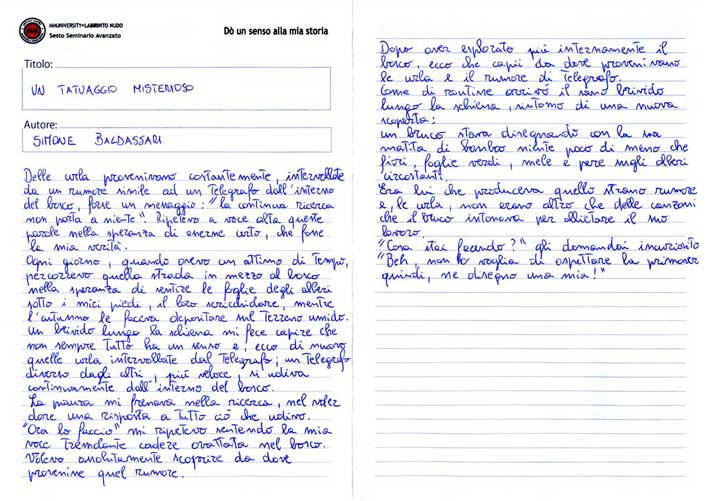 MHUNIVERSITY•LABIRINTO NUDO
Sesto Seminario Avanzato
Dò un senso alla mia storia
Titolo:
UN TATUAGGIO MISTERIOSO
Autore:
SIMONE BALDASSARI
Delle urla provenivano costantemente, intervallate
da un rumore simile ad un Telegrafo dall'interno
del bosco, forse un messaggio: "la continua ricerca
non porta a niente". Ripetevo a voce alta queste
parole nella speranza di esserne certo, che fosse
la mia verità.
Ogni giorno, quando avevo un attimo di tempo,
percorrevo quella strada in mezzo al bosco
nella speranza di sentire le foglie degli alberi
sotto i miei piedi, il loro scricchiolare, mentre
l'autunno le faceva depositare sul terreno umido.
Un brivido lungo la schiena mi fece capire che
non sempre tutto ha un senso e, ecco di nuovo
quelle urla intervallate dal Telegrafo; un Telegrafo
diverso dagli altri, più veloce, si udiva
continuamente dall'interno del bosco.
La paura mi frenava nella ricerca, nel voler
dare una risposta a tutto ciò che udivo.
"Ora lo faccio" mi ripetevo sentendo la mia
voce tremolante cadere ovattata nel bosco.
Volevo assolutamente scoprire da dove
provenisse quel rumore.
Dopo aver esplorato più internamente il
bosco, ecco che capii da dove provenivano
le urla e il rumore di Telegrafo.
Come di routine arrivò il sano brivido
lungo la schiena, sintomo di una nuova
scoperta:
un bruco stava disegnando con la sua
matita di bamboo niente poco di meno che
fiori, foglie verdi, mele e pere sugli alberi
circostanti.
Era lui che produceva quello strano rumore
e, le urla, non erano altro che delle canzoni
che il bruco intonava per allietare il suo
lavoro.
"Cosa stai facendo?" gli domandai incuriosito
"Beh, non ho voglia di aspettare la primavera
quindi, ne disegno una mia!"